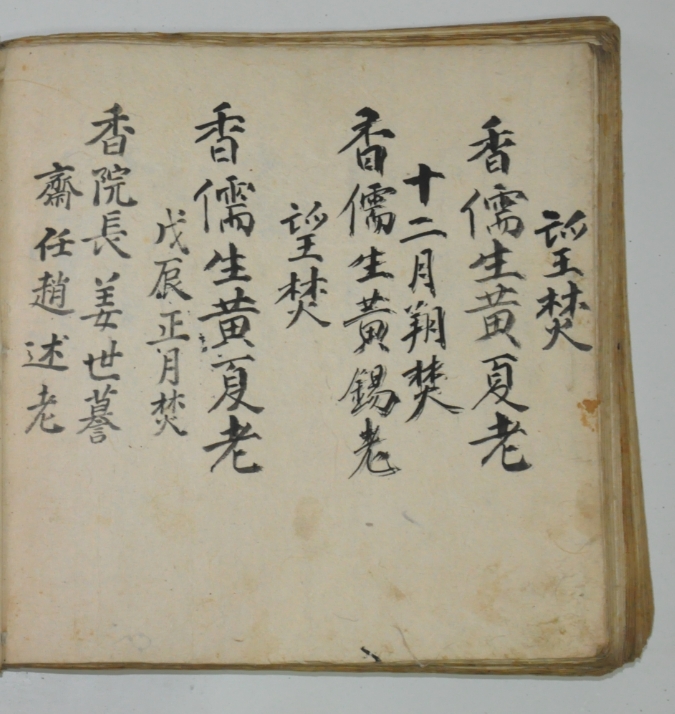 望焚
香儒生黃夏老
十二月朔焚
香儒生黃錫老
望焚
香儒生黃夏老
戊辰正月焚
香院長姜世謩
齋任趙述老